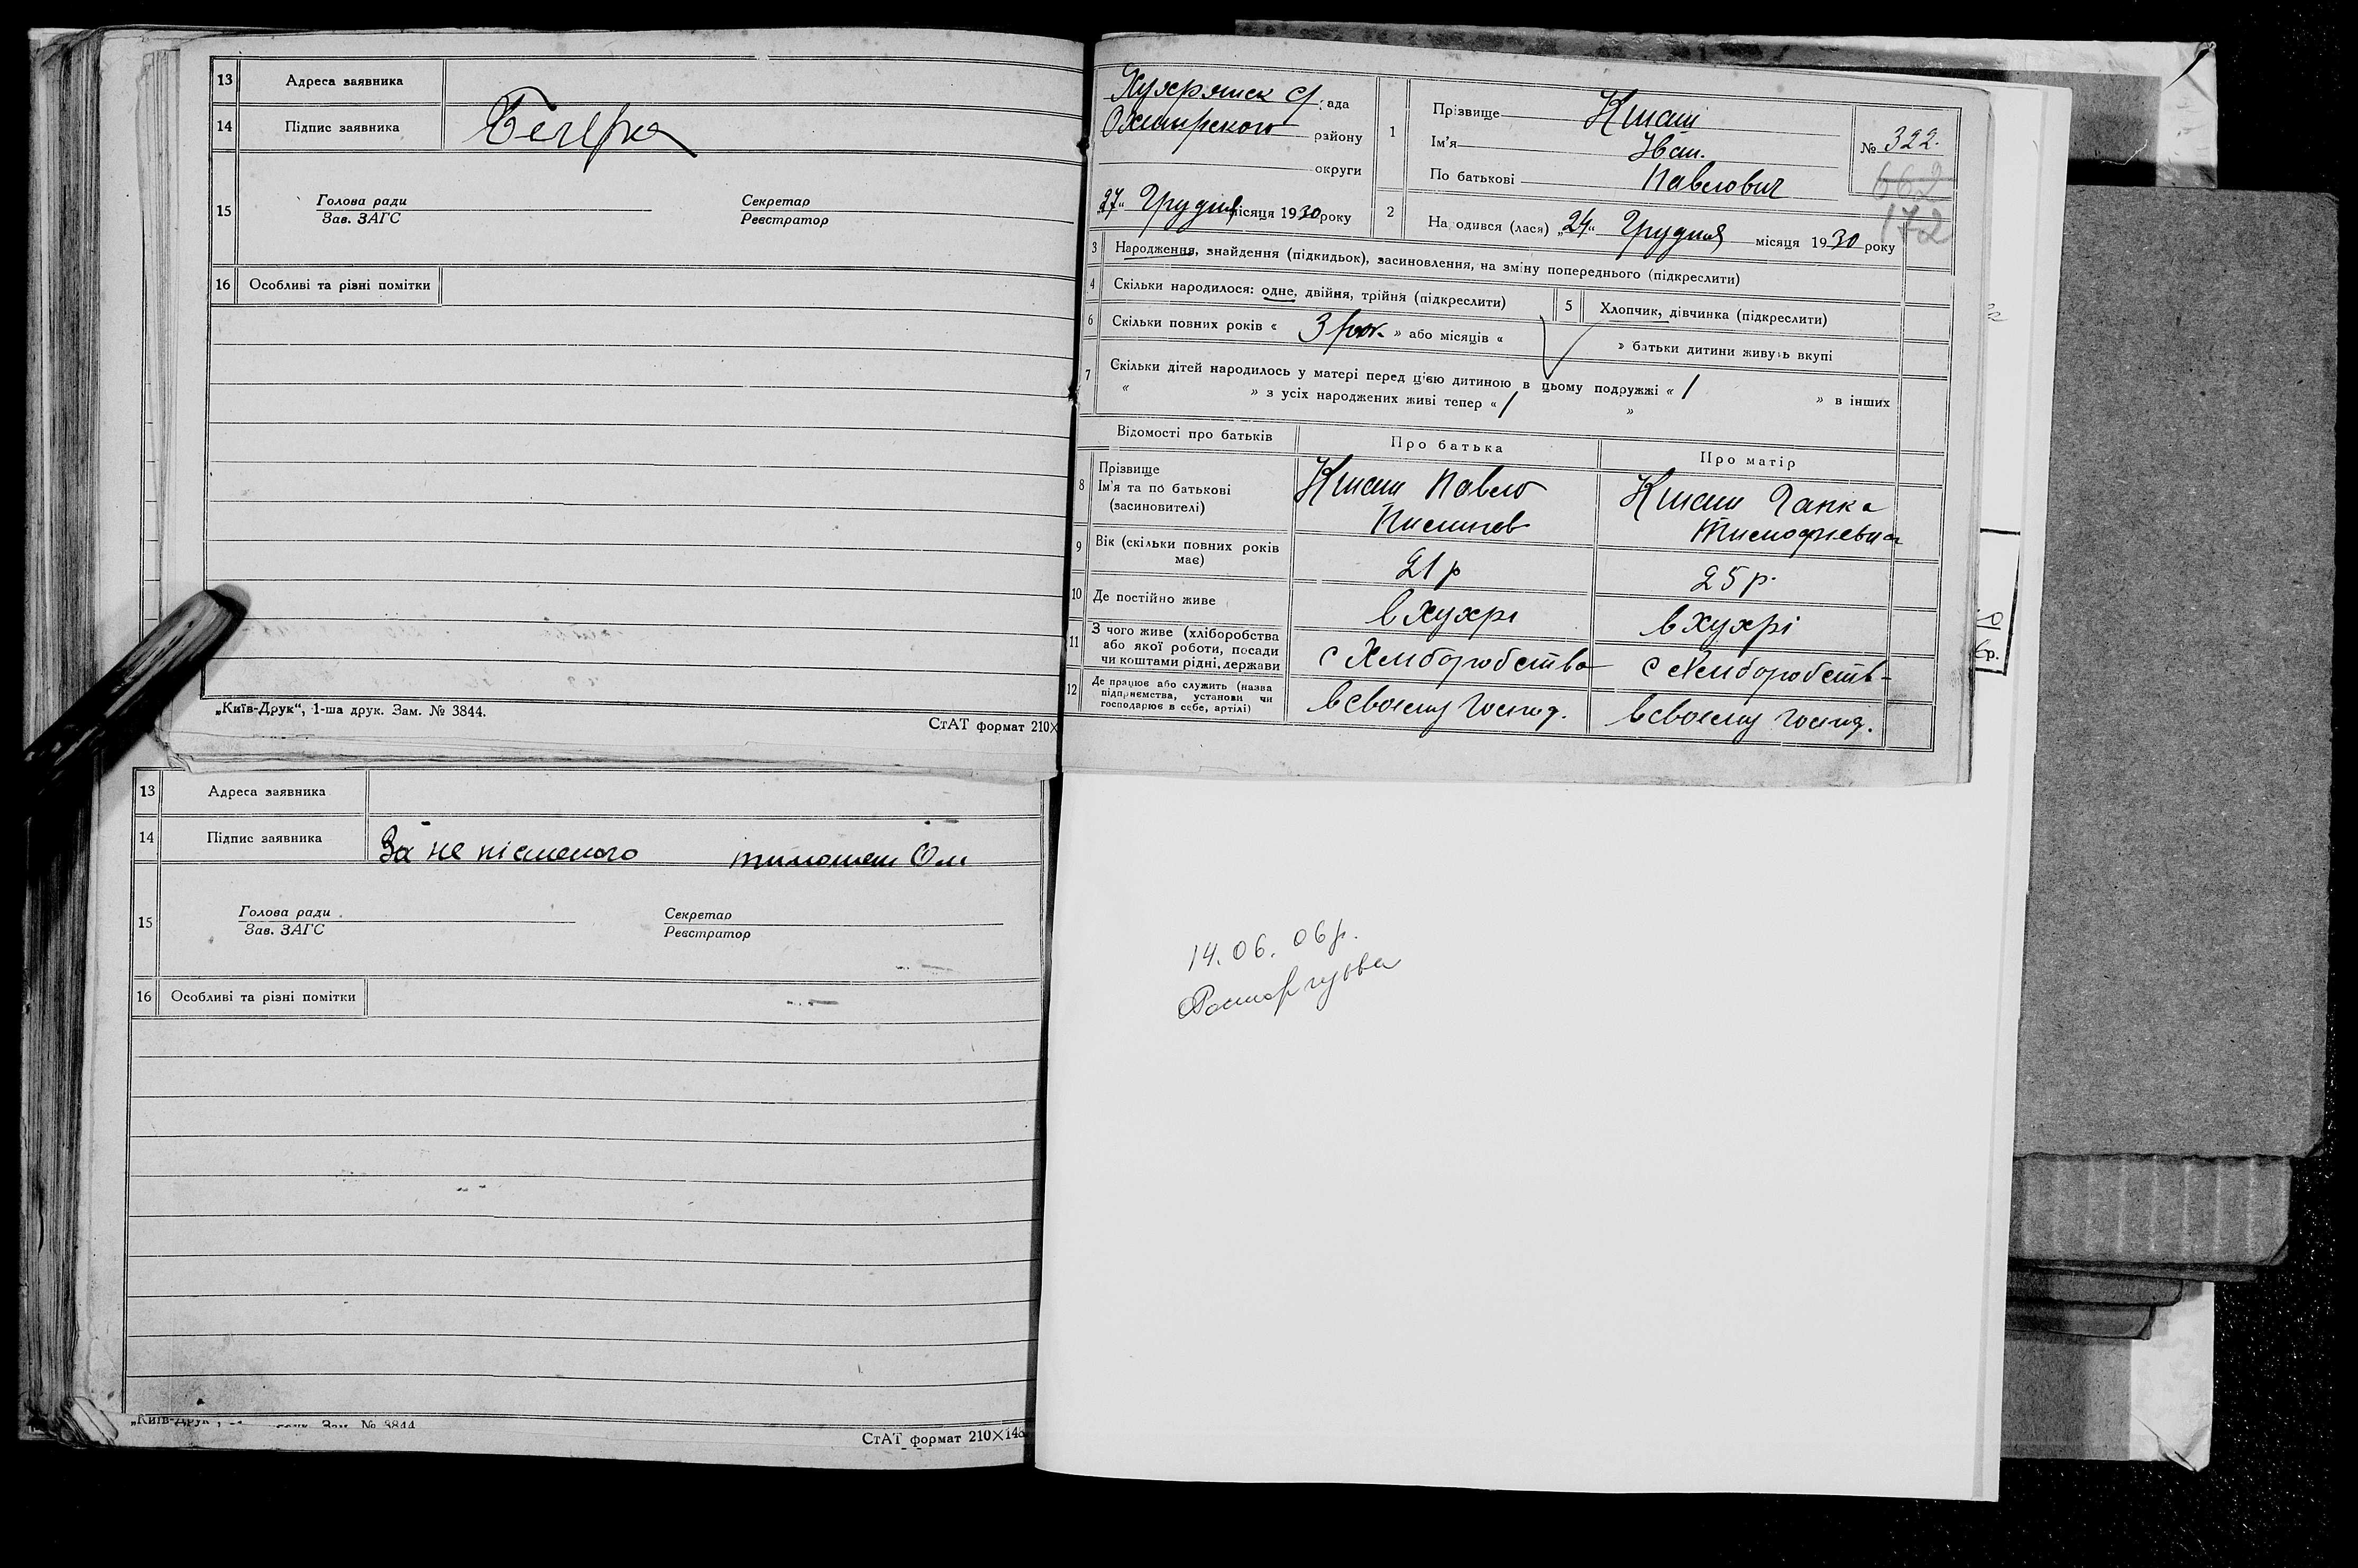 13 Адреса заявника
14 Підпис заявника
15 Голова ради Секретар
Зав. ЗАГС Реєстратор
16 Особливі та різні помітки
„Київ-Друк“, 1-ша друк. Зам. № 3844.
СтАТ формат 210×
13 Адреса заявника
14 Підпис заявника За не письменого
15 Голова ради Секретар
Зав. ЗАГС Реєстратор
16 Особливі та різні помітки
Зам. № 3844
СтАТ формат 210×148
ада
Охтирского району
округи
„27“ Грудня місяця 1930 року
1 Прізвище
Ім'я Іван.
По батькові Павлович
№ 322.
662
172
2 На одився (лася) „24“ Грудня місяця 1930 року
3 Народження, знайдення (підкидьок), засиновлення, на зміну попереднього (підкреслити)
4 Скільки народилося: одне, двійня, трійня (підкреслити) 5 Хлопчик, дівчинка (підкреслити)
6 Скільки повних років « 3 рок. » або місяців « » батьки дитини живуть вкупі
7 Скільки дітей народилось у матері перед цією дитиною в цьому подружжі « 1 » в інших
« » з усіх народжених живі тепер « 1 »
Відомості про батьків Про батька Про матір
8 Прізвище
Ім'я та по батькові
(засновителі)
Павло
Гапка
Тимофиевна
9 Вік (скільки повних років має) 21 р 25 р.
10 Де постійно живе в Хухрі в Хухрі
11 З чого живе (хліборобства
або якої роботи, посади
чи коштами рідні, держави
с Хлиборобства с Хлиборобств-
12 Де працює або служить (назва
підприємства, установи чи
господарює в себе, артілі)
в своєму госпид. в своєму госпид.
14.06.06р.